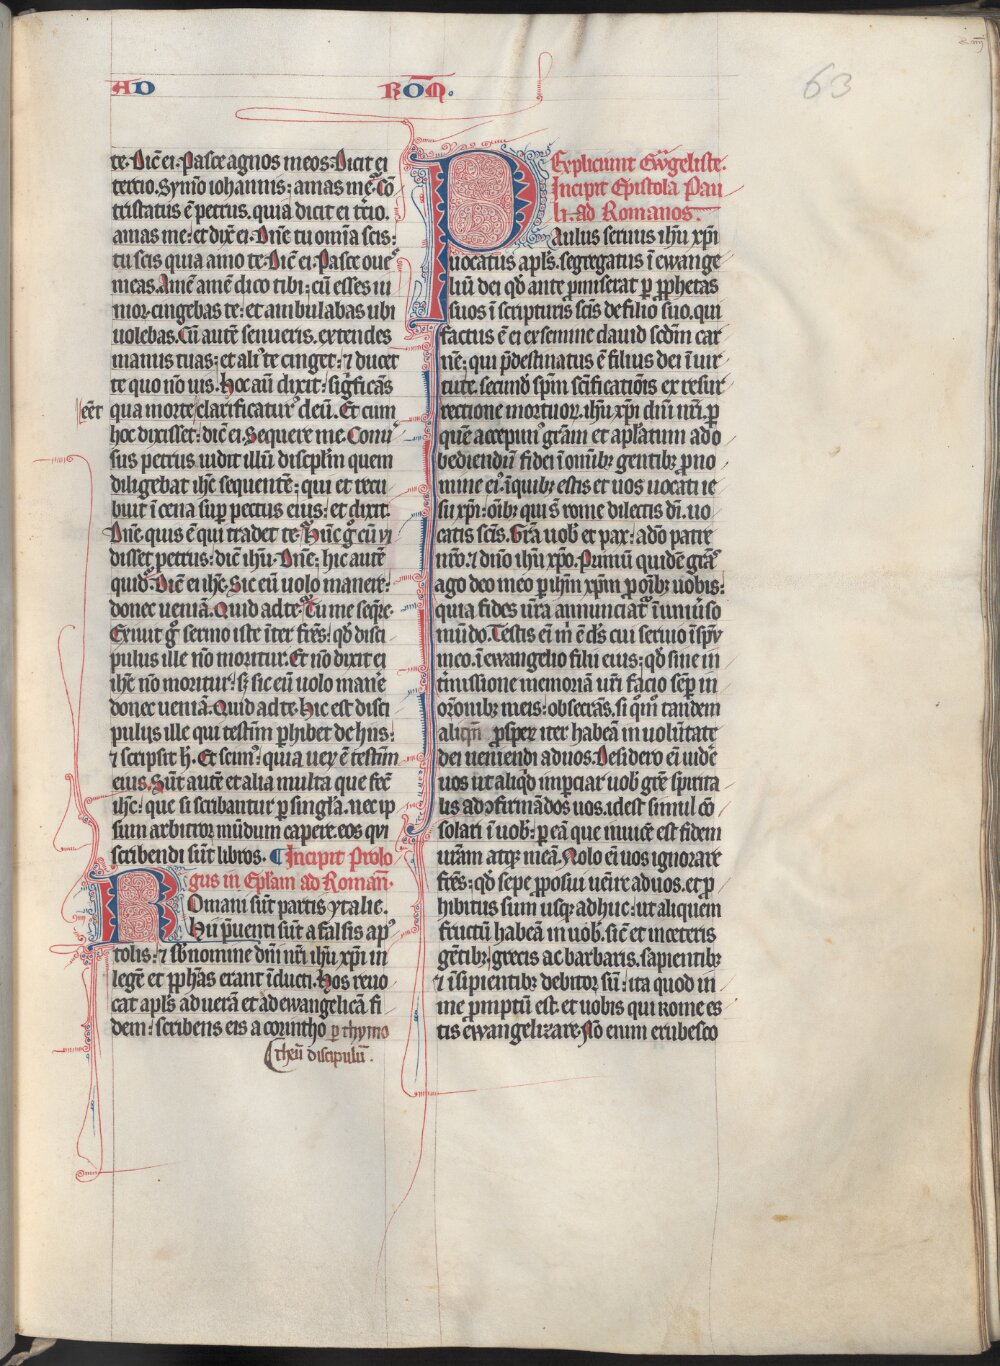 AD ROM̅.
63
te. Dic̅ ei. Pasce agnos meos. Dicit ei
tercio. Symo̅ iohannis: amas me. Co̅
tristatus e̅ petrus. quia dicit ei t̅cio.
amas me: et dix̅ ei. Dn̅e tu om̅ia scis:
tu scis quia amo te. Dic̅ ei. Pasce oues
meas. Ame̅ ame̅ dico tibi: cu̅ esses iu
nior cingebas te: et ambulabas ubi
uolebas. Cu̅ aute̅ senueris. extendes
manus tuas: et aliꝰ te cinget: ⁊ ducet
te quo no̅ uis. Hoc au̅ dixit: sig̅ficans
eēt qua morte clarificaturꝰ deu̅. Et cum
hoc dixisset: dic̅ ei. Sequere me. Conuͥ
sus petrus uidit illu̅ discipl̅m quem
diligebat ihc̅ sequente̅: qui et recu
buit i̅ cena sup̅ pectus eius: et dixit.
Dn̅e. quis e̅ qui tradet te. Hu̅c gͦ cu̅ vi
disset petrus: dic̅ ihu̅. Dn̅e: hic aute̅
quid. Dic̅ ei ihc̅. Sic eu̅ uolo manere:
donec uenia̅. Quid ad te. Tu me seq̅re.
Exiuit gͦ sermo iste i̅ter fr̅es: qd̅ disci
pulus ille no̅ moritur. Et no̅ dixit ei
ihc̅ no̅ moritur: sꝫ sic eu̅ uolo mane̅
donec uenia̅. Quid ad te. Hic est disci
pulus ille qui testi̅m phibet de hiis:
⁊ scripsit h̅. Et scimꝰ: quia ueꝝ e̅ testi̅m
eius. Su̅t aute̅ et alia multa que fec̅
ihc̅: que si scribantur p singl̅a. nec ip
sum arbitror mu̅dum capere. eos qui
scribendi su̅t libros. ¶ Incipit Prolo
gus in Epl̅am ad Roman̅.
Romani su̅t partis ytalie.
Hii p̅uenti su̅t a falsis apꝰ
tolis: ⁊ sb̅ nomine dn̅i nr̅i ihu̅ xp̅i in
lege̅ et pph̅as erant i̅ducti. Hos reuo
cat apl̅s ad uera̅ et ad ewangelica̅ fi
dem: scribens eis a corintho p thymo
theu̅ discipulu̅.
Expliciunt Ewͣgeliste.
Incipit Epistola Pau
li. ad Romanos.
Paulus seruus ihu̅ xp̅i
uocatus apl̅s. segregatus i̅ ewange
liu̅ dei qd̅ ante p̅miserat p pphetas
suos i̅ scripturis sc̅is de filio suo. qui
factus e̅ ei ex semine dauid scd̅m car
ne̅: qui p̅destinatus e̅ filius dei i̅ uir
tute. secund̅ sp̅m sc̅ificatio̅is ex resur
rectione mortuoꝝ. ihu̅ xp̅i dn̅i nr̅i. p
que̅ accepimꝰ gr̅am et apl̅atum ad o
bediendu̅ fidei i̅ om̅ibꝫ gentibꝫ p no
mine eiꝰ. i̅ quibꝫ estis et uos uocati ie
su xp̅i: o̅ibꝫ qui s̅ rome dilectis dei̅. uo
catis sc̅is. Gr̅a uob̅ et pax: a do̅ patre
nr̅o. ⁊ dn̅o ihu̅ xp̅o. Primu̅ quide̅ gr̅as
ago deo meo p ihm̅ xpm̅ p o̅ibꝫ uobis:
quia fides ur̅a annunciatͬ i̅ uniu̅so
mu̅do. Testis ei̅ m̅ e̅ ds̅ cui seruo i̅ sp̅u
meo. i̅ ewangelio filii eius: qd̅ sine in
t̅missione memoria̅ ur̅i facio se̅p in
or̅onibꝫ meis: obsecra̅s. si qͦm tandem
aliqn̅ psper̅ iter habea̅ in uolu̅tate
dei ueniendi ad uos. Desidero ei̅ uide̅
uos ut aliqͥd imp̅ciar uob̅ gr̅e spirita
lis ad ꝯfirma̅dos uos. id est simul co̅
solari i̅ uob̅: p ea̅ que inuice̅ est fidem
ur̅am atqꝫ mea̅. Nolo ei̅ uos ignorare
fr̅es: qd̅ sepe pposui ueire ad uos. et p
hibitus sum usqꝫ adhuc: ut aliquem
fructu̅ habea̅ in uob̅. sic̅ et in ceteris
ge̅tibꝫ. grecis ac barbaris. sapientibꝫ
⁊ i̅sipientibꝫ debitor su̅: ita quod in
me pmptu̅ est. et uobis qui rome es
tis ewangelizare. No̅ enim erubesco